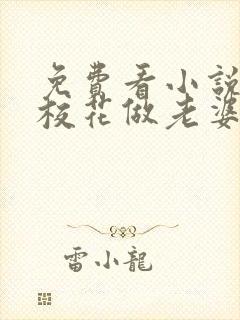 免費看小說
校花做老婆
雷小龍